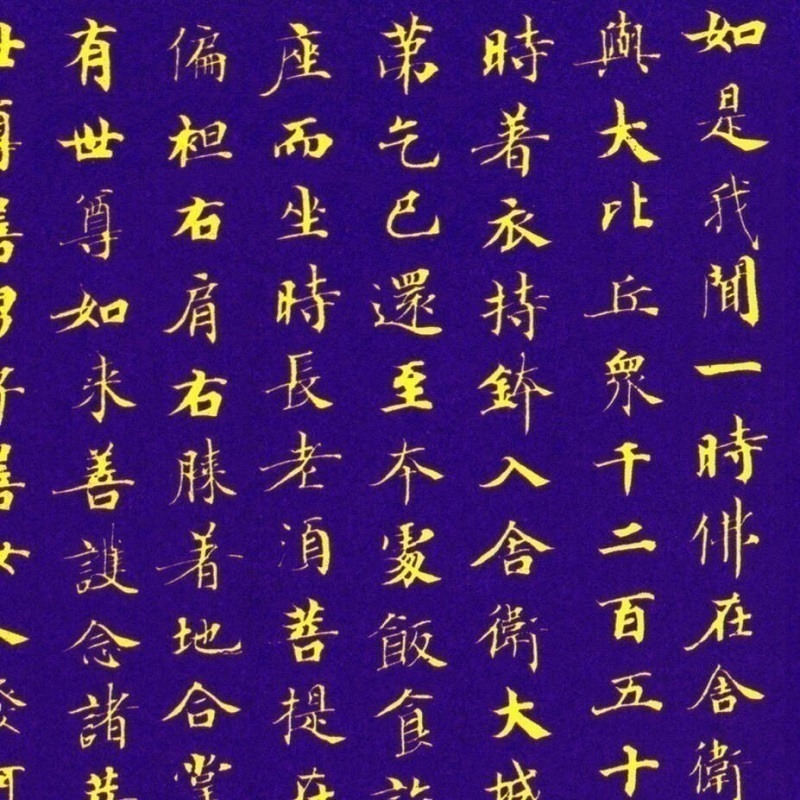 如是我聞一時佛在舍衛
與大比丘衆千二百五十
時著衣持鉢入舍衛大城
苐乞已還至夲處飯食訖
座而坐時長老須菩提在
偏袒右肩右膝著地合掌
有世尊如来善護念諸菩
世尊善男子善女人發阿